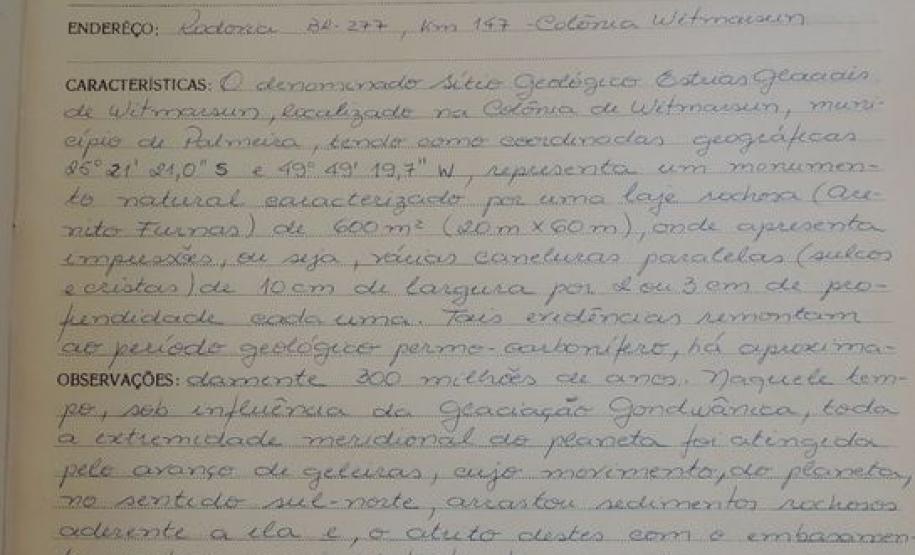 ENDERÊÇO: Rodovia BR-277, Km 147 - Colônia Witmarsun
CARACTERÍSTICAS: O denominado Sítio Geológico Estrias Glaciais
de Witmarsun, localizado na Colônia de Witmarsun, muni-
cípio de Palmeira, tendo como coordenadas geográficas
25° 21' 21,0" S e 49° 49' 19,7" W, representa um monumen-
to natural caracterizado por uma laje rochosa (Are-
nito Furnas) de 600 m² (20m x 60m), onde apresenta
impressões, ou seja, várias caneluras paralelas (sulcos
e cristas) de 10 cm de largura por 2 ou 3 cm de pro-
fundidade cada uma. Tais evidências remontam
ao período geológico permo-carbonífero, há aproxima-
OBSERVAÇÕES: damente 300 milhões de anos. Naquele tem-
po, sob influência da Glaciação Gondwânica, toda
a extremidade meridional do planeta foi atingida
pelo avanço de geleiras, cujo movimento, do planeta,
no sentido sul-norte, arrastou sedimentos rochosos
aderente a ela e, o atrito destes com o embasamen